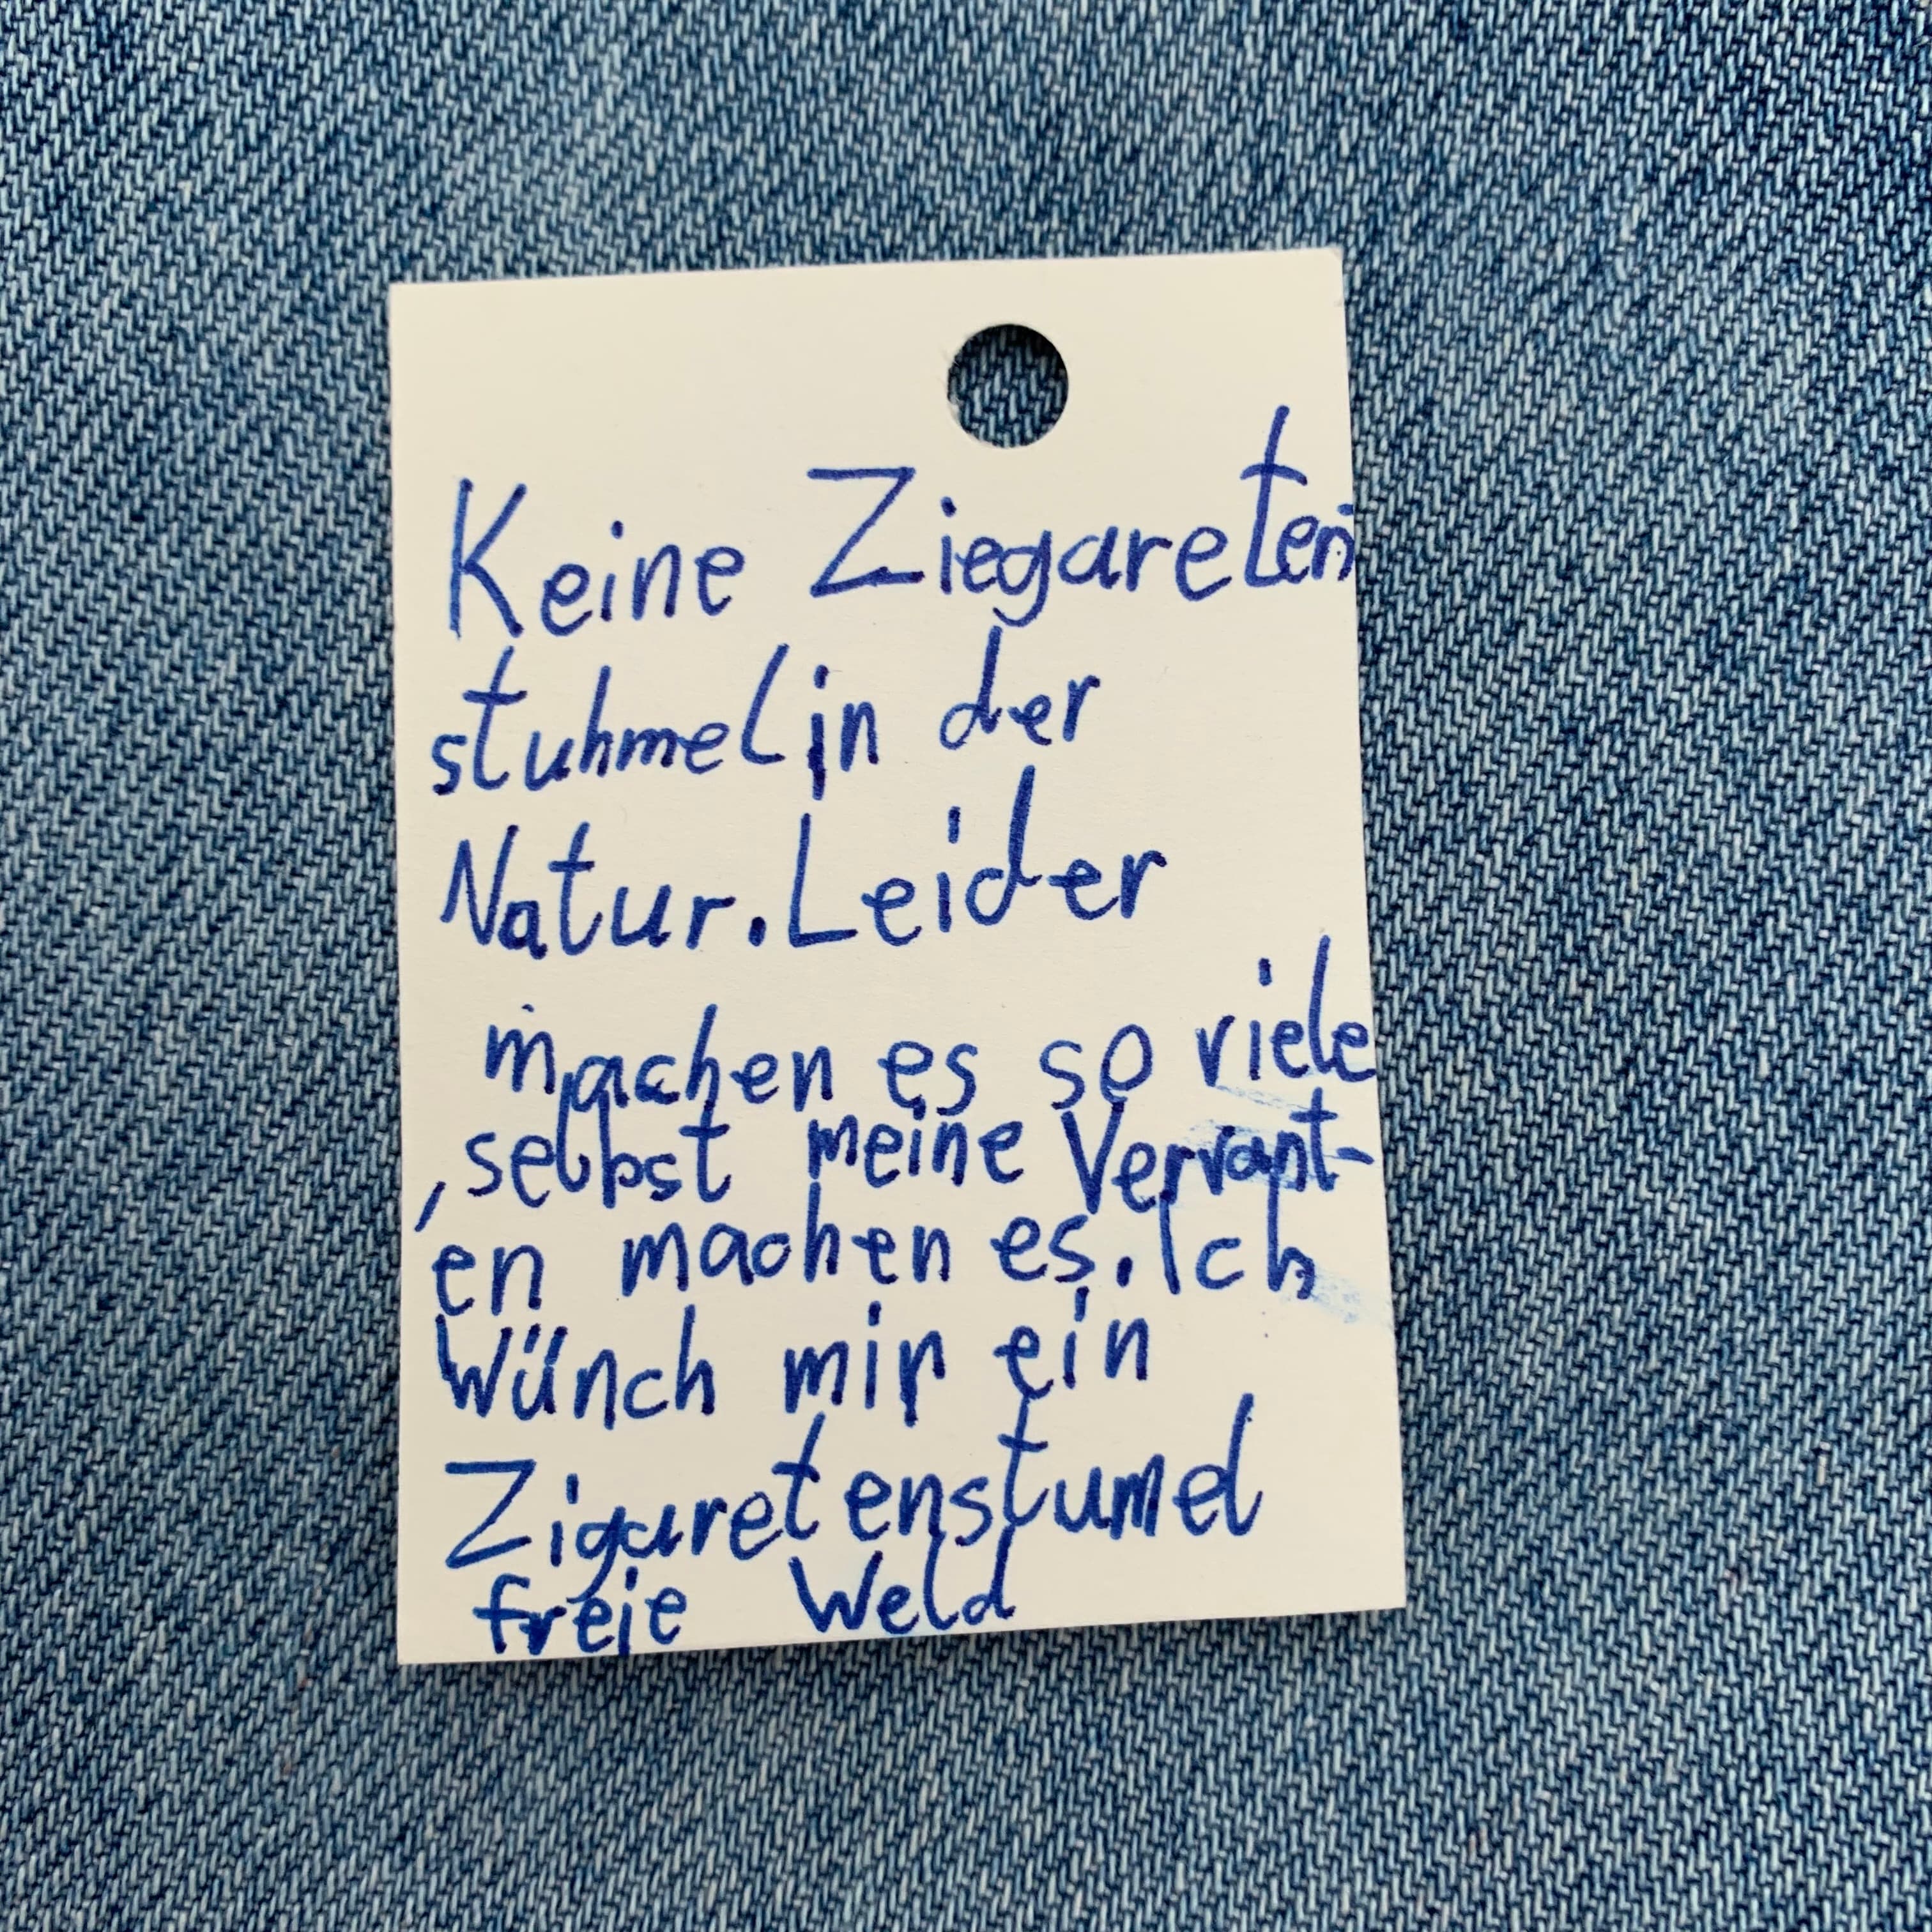 Keine Ziegareten
stuhmel in der
Natur. Leider
machen es so viele
, selbst meine Verrant-
en machen es. Ich
Wünch mir ein
Zigaretenstumel
freie Weld